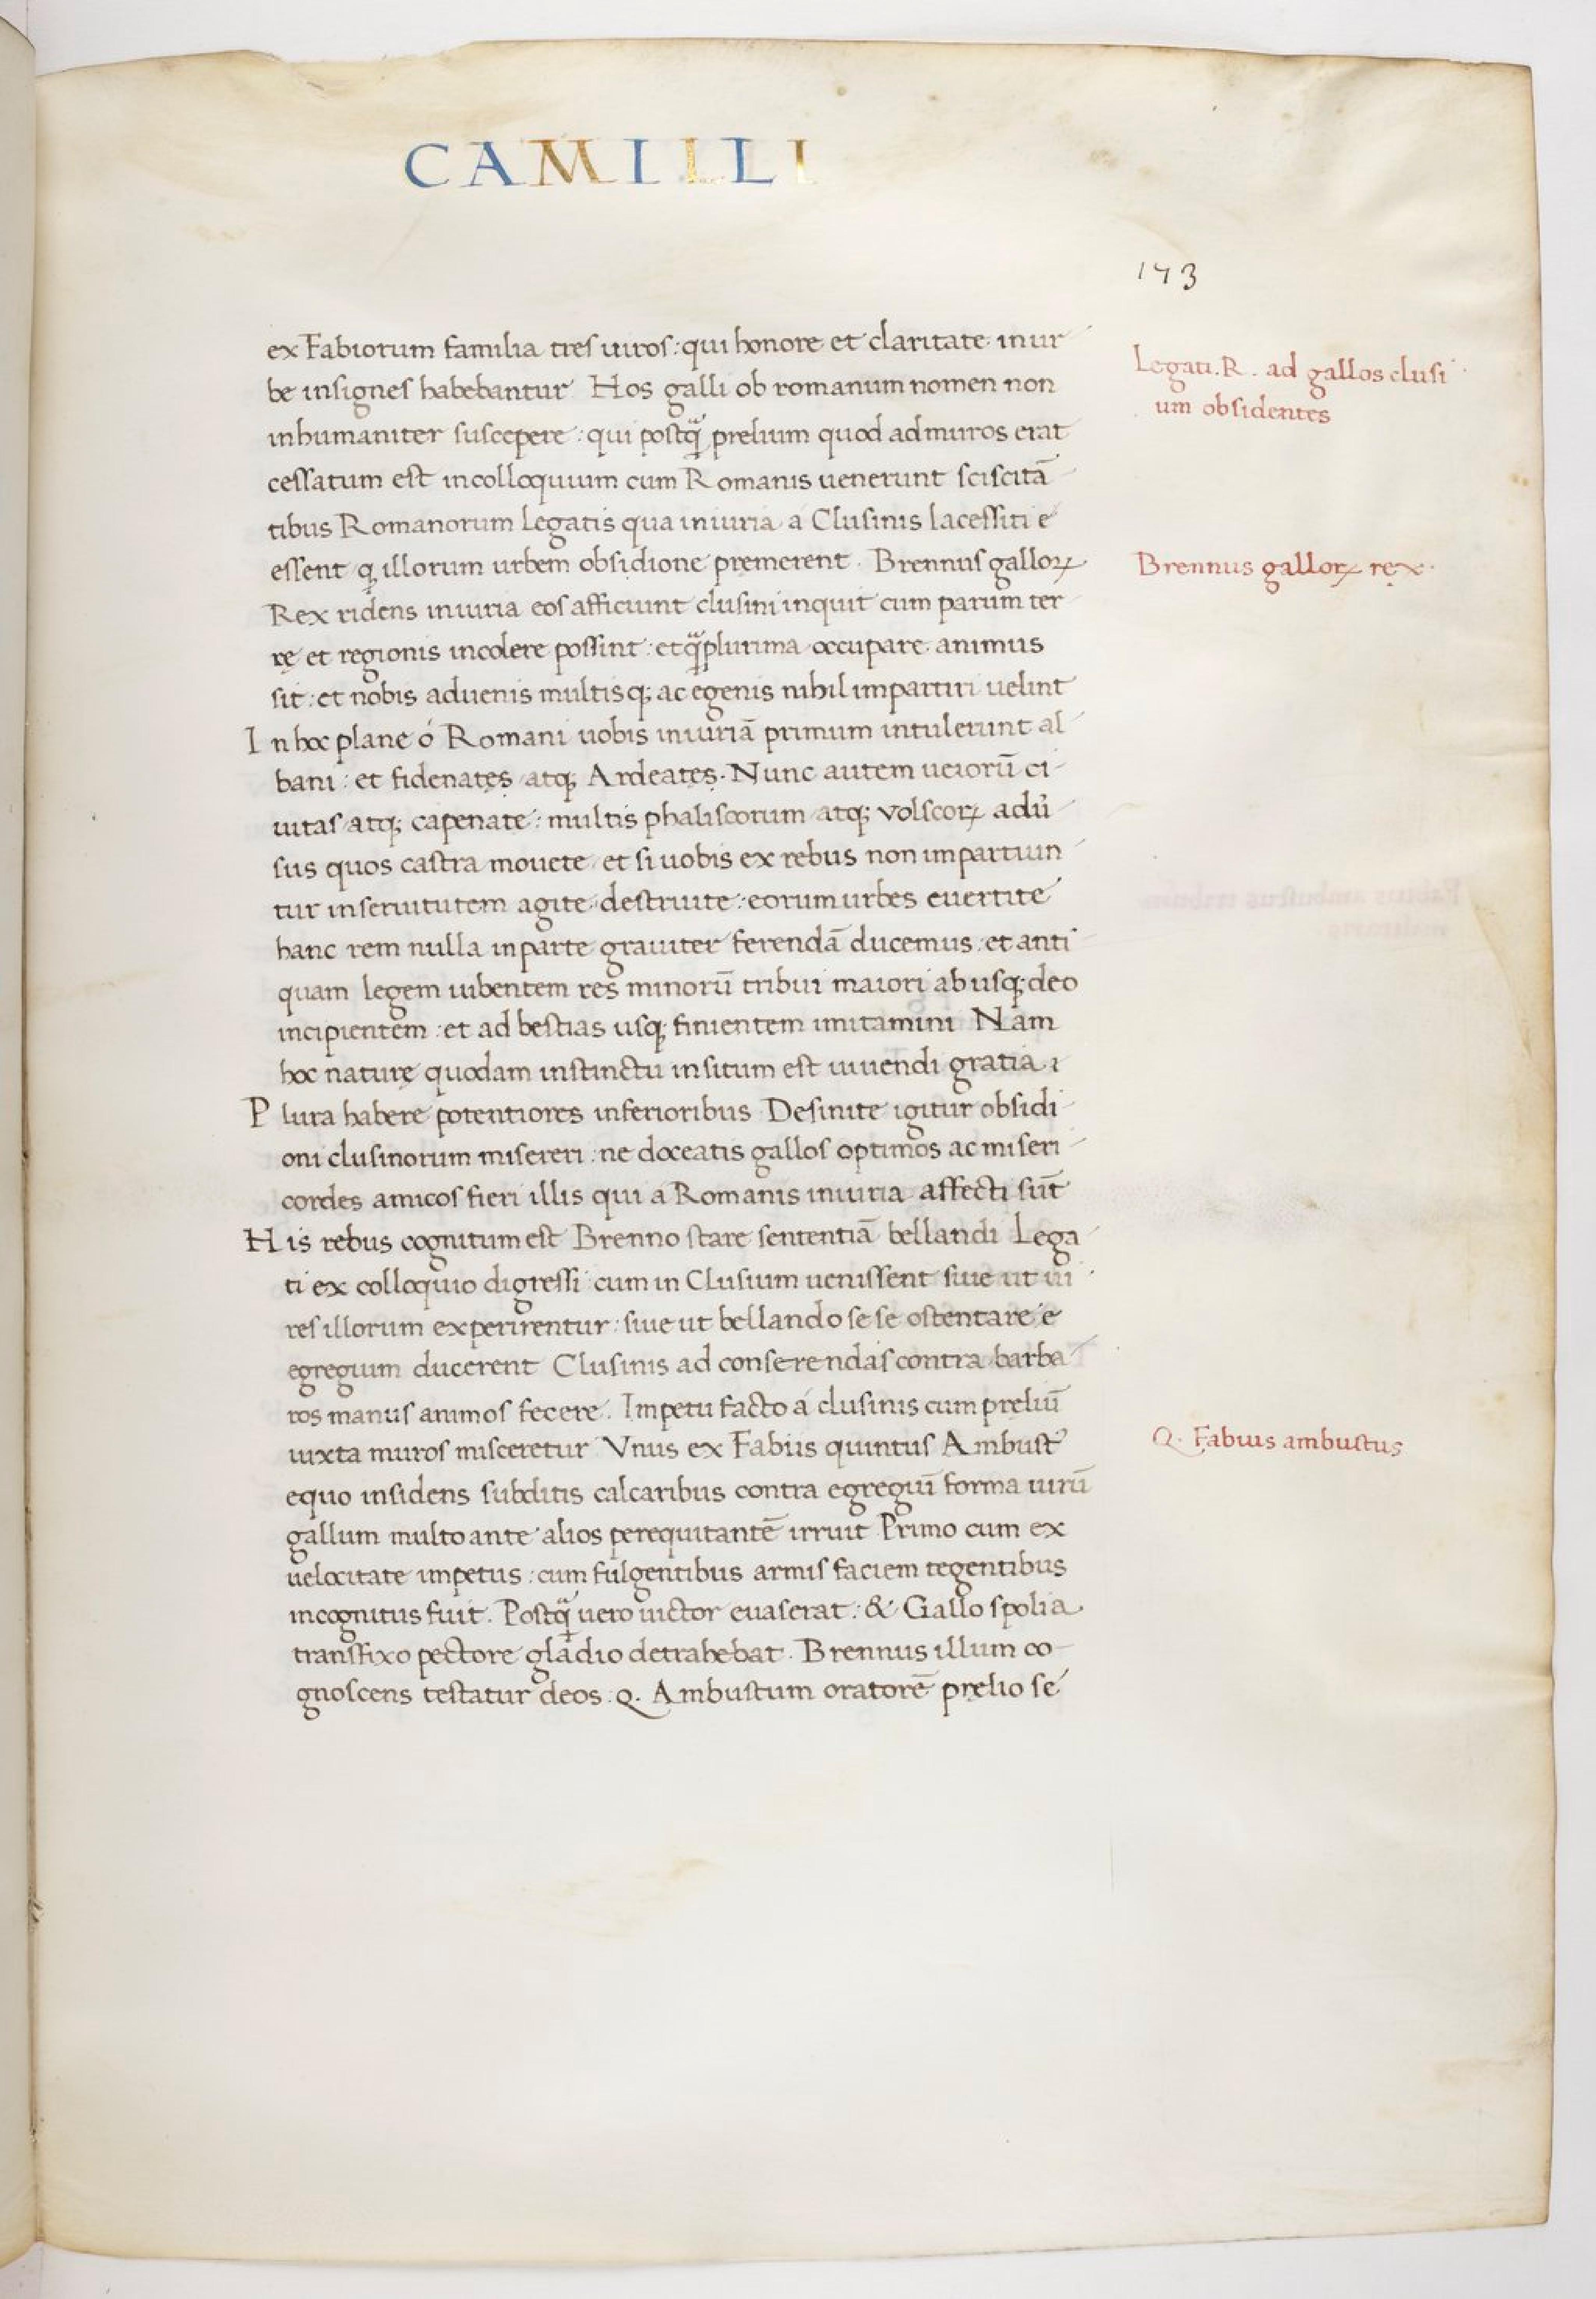 CAMILLI
173
ex Fabiorum familia tres uiros: qui honore et claritate in ur-
be insignes habebantur Hos galli ob romanum nomen non
inhumaniter suscepere: qui postq̃ prelium quod ad muros erat
cessatum est in colloquium cum Romanis uenerunt sciscitā-
tibus Romanorum Legatis qua iniuria a Clusinis lacessiti e
essent q; illorum urbem obsidione premerent. Brennus galloꝝ
Rex ridens iniuria eos afficiunt clusini inquit cum parum ter-
rę et regionis incolere possint: et q̃plurima occupare animus
sit: et nobis aduenis multisq; ac egenis nihil impartiri uelint
In hoc plane ó Romani uobis iniuriā primum intulerunt al-
bani: et fidenates atq; Ardeates. Nunc autem ueiorū ci-
uitas atq; capenate: multis phaliscorum atq; volscoꝝ adũ-
sus quos castra mouete et si uobis ex rebus non impartiun-
tur in seruitutem agite destruite: eorum urbes euertite
hanc rem nulla in parte grauiter ferendā ducemus: et anti-
quam legem iubentem res minorū tribui maiori ab usq; deo
incipientem: et ad bestias usq; finientem imitamini Nam
hoc naturę quodam instinctu insitum est uiuendi gratia
Plura habere potentiores inferioribus Desinite igitur obsidi-
oni clusinorum misereri: ne doceatis gallos optimos ac miseri-
cordes amicos fieri illis qui a Romanis iniuria affecti sūt
His rebus cognitum est Brenno stare sententiā bellandi Lega-
ti ex colloquio digressi cum in Clusium uenissent siue ut ui
res illorum experirentur: siue ut bellando se se ostentare e
egregium ducerent Clusinis ad conserendas contra barba-
ros manus animos fecere. Impetu facto a clusinis cum preliū
iuxta muros misceretur Vnus ex Fabiis quintus Ambustꝰ
equo insidens subditis calcaribus contra egregiū forma uirū
gallum multo ante alios perequitantē irruit Primo cum ex
uelocitate impetus: cum fulgentibus armis faciem tegentibus
incognitus fuit. Postq̃ uero uictor euaserat: & Gallo spolia
transfixo pectore gladio detrahebat. Brennus illum co-
gnoscens testatur deos: Q. Ambustum oratorē prelio se
Legati. R. ad gallos clusi
um obsidentes
Brennus galloꝝ rex.
Q. Fabius ambustus